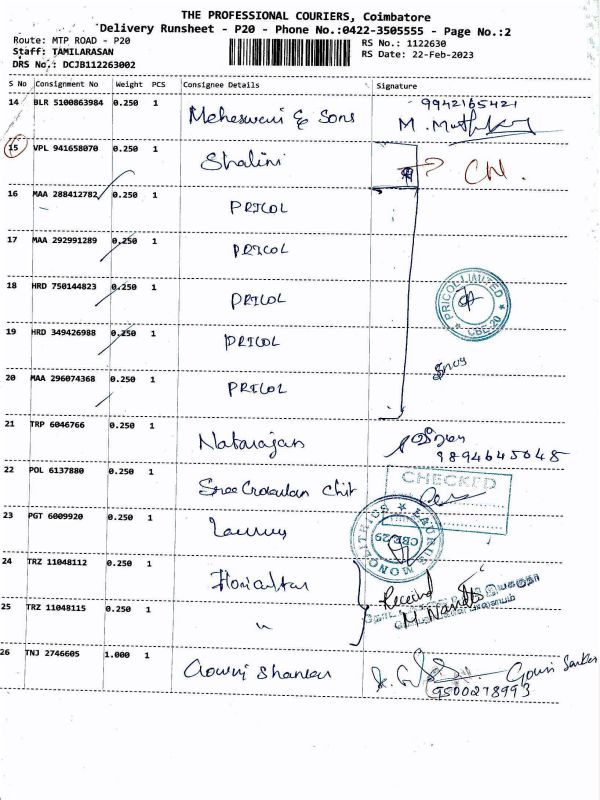 THE PROFESSIONAL COURIERS, Coimbatore
Delivery Runsheet - P20 - Phone No.:0422-3505555 - Page No.:2
Route: MTP ROAD - P20
RS No.: 1122630
Staff: TAMILARASAN
RS Date: 22-Feb-2023
DRS No.: DCJB112263002
S No Consignment No Weight PCS Consignee Details Signature
9942165421
14 BLR 5100863984 0.250 1 Maheswari & Sons
15 VPL 941658070 0.250 1 Shalini CN.
16 MAA 288412782 0.250 1 PRICOL
17 MAA 292991289 0.250 1 PRICOL
18 HRD 750144823 0.250 1 PRICOL
PRICOL LIMITED
CBE-20
19 HRD 349426988 0.250 1 PRICOL
20 MAA 296074368 0.250 1 PRICOL
21 TRP 6046766 0.250 1 Natarajan
9894645648
22 POL 6137880 0.250 1 Chit
CHECKED
23 PGT 6009920 0.250 1
LAURUS MONOLITHICS
CBE-29
24 TRZ 11048112 0.250 1
Received
25 TRZ 11048115 0.250 1 "
26 TNJ 2746605 1.000 1 Gowri Shankar
Gowri Sankar
9500278993